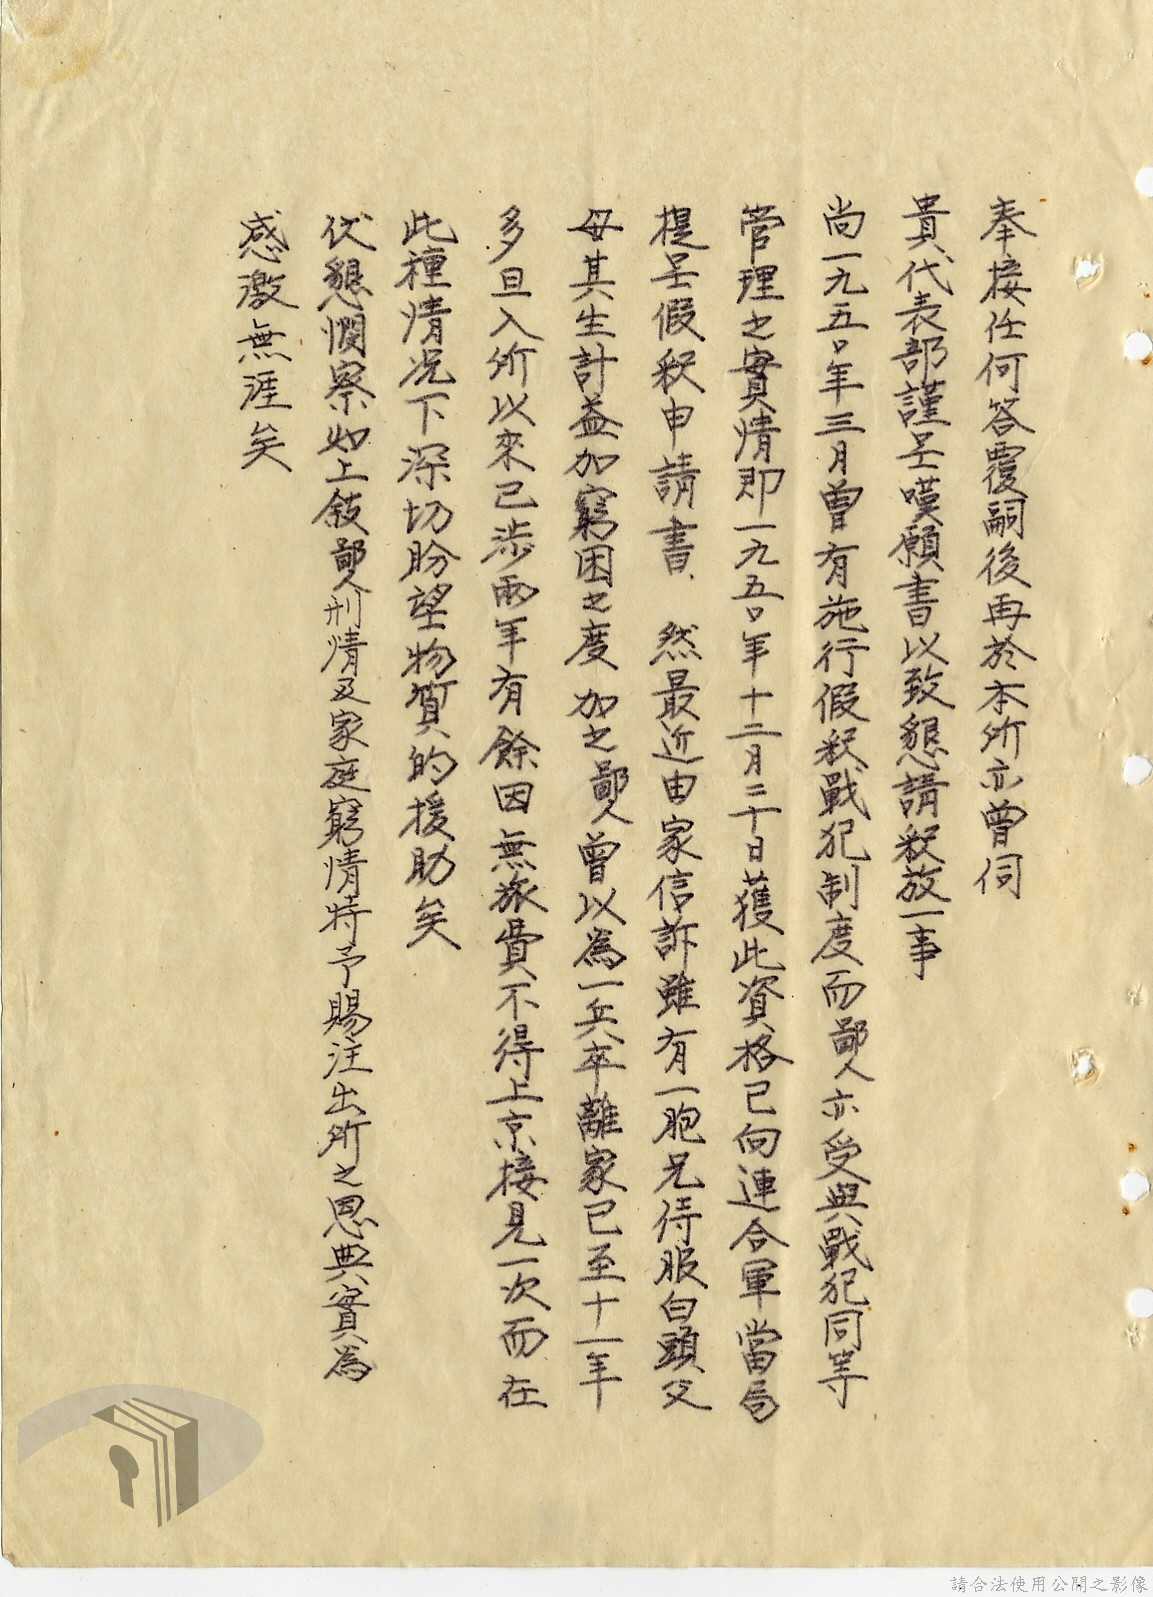 奉接任何答覆嗣後再於本所亦曾伺
貴代表部謹呈嘆願書以致懇請釈放一事
尚一九五〇年三月曾有施行假釈戰犯制度而鄙人亦受與戰犯同等
管理之實情即一九五〇年十二月二十日獲此資格已向連合軍當局
提呈假釈申請書、然最近由家信訴雖有一胞兄侍服白頭父
母其生計益加窮困之度加之鄙人曾以為一兵卒離家已至十一年
多旦入所以來已涉兩年有餘因無旅費不得上京接見一次而在
此種情況下深切盼望物質的援助矣
伏懇憫察如上敍鄙人刑情及家庭窮情特予賜注出所之恩典實為
感激無涯矣
請合法使用公開之影像